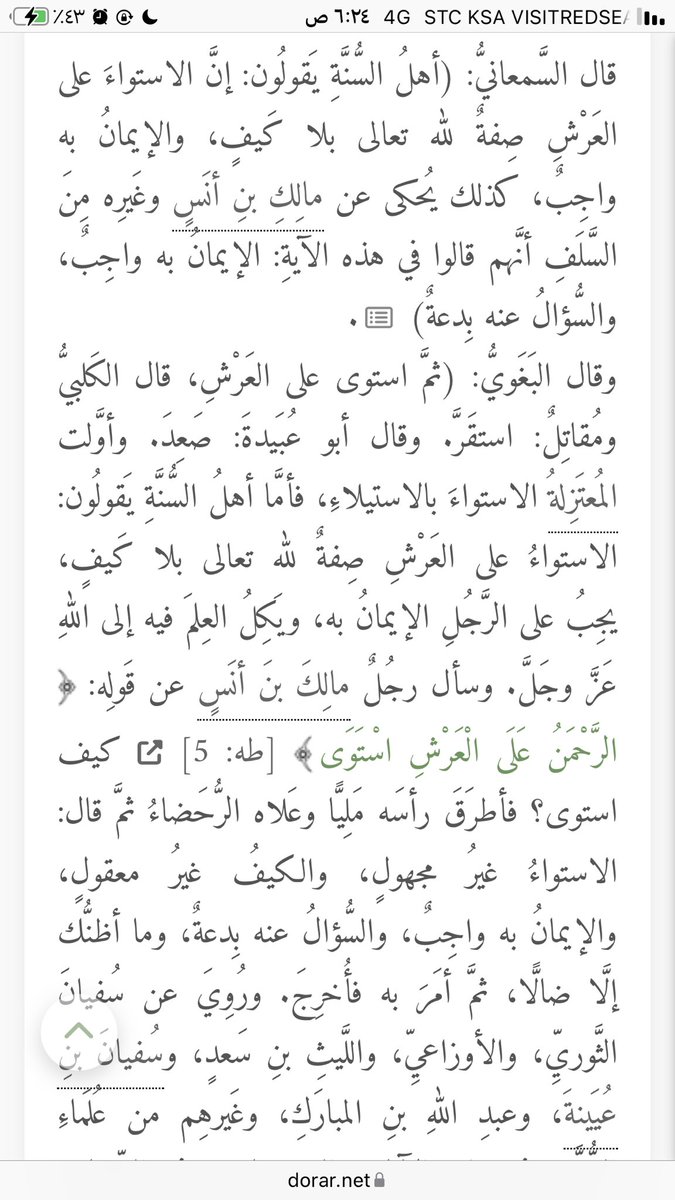 ٪٤٣ ٦:٢٤ ص 4G STC KSA VISITREDSEA
قال السَّمعانيُّ: (أهلُ السُّنَّةِ يَقولُون: إنَّ الاستواءَ على
العَرْشِ صِفةٌ لله تعالى بلا كَيفٍ، والإيمانُ به
واجِبٌ، كذلك يُحكى عن مالِكِ بنِ أنَسٍ وغَيرِه مِنَ
السَّلَفِ أنَّهم قالوا في هذه الآيةِ: الإيمانُ به واجِبٌ،
والسُّؤالُ عنه بِدعةٌ) .
وقال البَغَويُّ: (ثمَّ استوى على العَرْشِ، قال الكَلبيُّ
ومُقاتِلٌ: استقَرَّ. وقال أبو عُبَيدةَ: صَعِدَ. وأوَّلت
المُعتَزِلةُ الاستواءَ بالاستيلاءِ، فأمَّا أهلُ السُّنَّةِ يَقولُون:
الاستواءُ على العَرْشِ صِفةٌ لله تعالى بلا كَيفٍ،
يجِبُ على الرَّجُلِ الإيمانُ به، ويَكِلُ العِلمَ فيه إلى اللهِ
عَزَّ وجَلَّ. وسأل رجُلٌ مالِكَ بنَ أنَسٍ عن قَولِه: ﴿
الرَّحْمَنُ عَلَى الْعَرْشِ اسْتَوَى﴾ [طه: 5] كيف
استوى؟ فأطرَقَ رأسَه مَلِيًّا وعَلاه الرُّحَضاءُ ثمَّ قال:
الاستواءُ غيرُ مجهولٍ، والكيفُ غيرُ معقولٍ،
والإيمانُ به واجِبٌ، والسُّؤالُ عنه بِدعةٌ، وما أظنُّك
إلَّا ضالًّا، ثمَّ أمَرَ به فأُخرِجَ. ورُوِيَ عن سُفيانَ
الثَّوريِّ، والأوزاعيِّ، واللَّيثِ بنِ سَعدٍ، وسُفيانَ بنِ
عُيَينةَ، وعبدِ اللهِ بنِ المبارَكِ، وغَيرِهم من عُلَماءِ
dorar.net